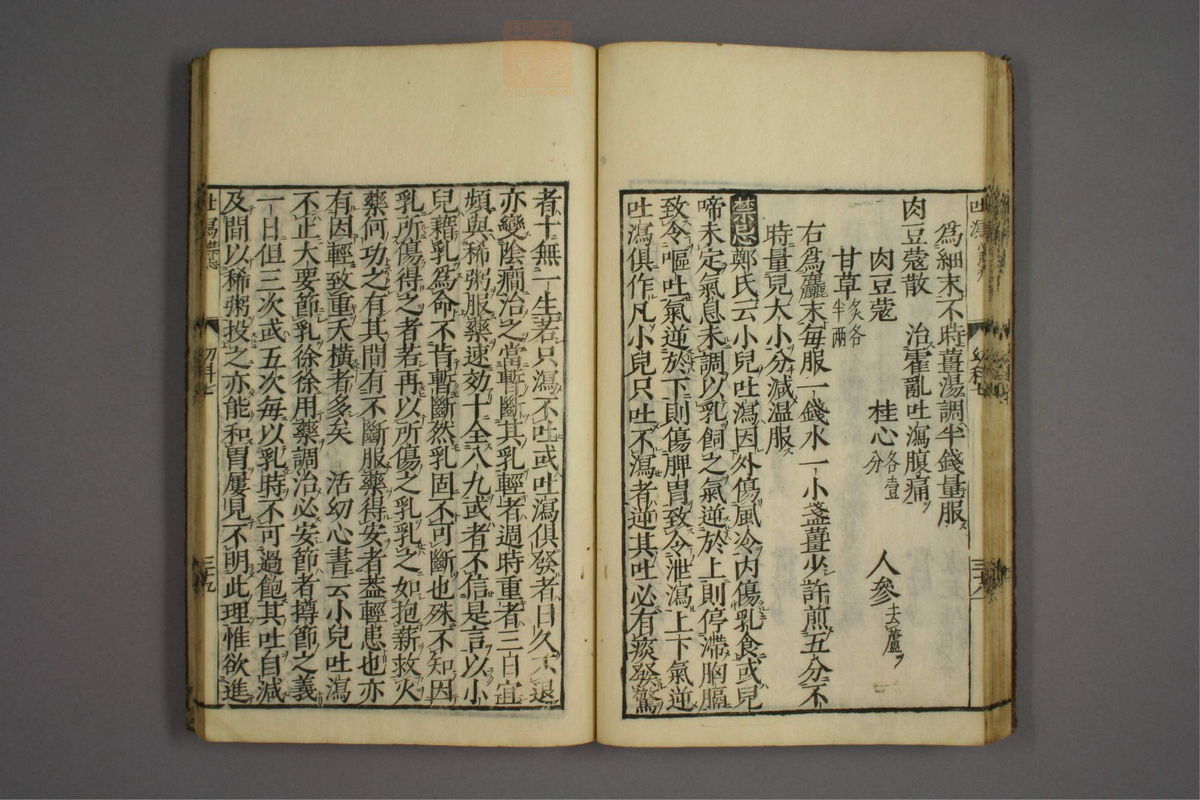 為細末不時薑湯調半錢量服
肉豆蔻散　治霍亂吐瀉腹痛
肉豆蔻　桂心各壹分　人參去蘆
甘草炙各半兩
右為麤末每服一錢水一小盞薑少許煎五分不
時量兒大小分減温服
禁忌鄭氏云小兒吐瀉因外傷風冷内傷乳食或兒
啼未定氣息未調以乳飼之氣逆於上則停滯胸膈
致令嘔吐氣逆於下則傷脾胃致令泄瀉上下氣逆
吐瀉俱作凡小兒只吐不瀉者逆其吐必有痰發驚
者十無一生若只瀉不吐或吐瀉俱發者日久不退
亦變陰癇治之當暫斷其乳輕者週時重者三日宜
頻與稀粥服藥速効十全八九或者不信是言以小
兒藉乳為命不肯暫斷然乳固不可斷也殊不知因
乳所傷得之者若再以所傷之乳乳之如抱薪救火
藥何功之有其間有不斷服藥得安者蓋輕患也亦
有因輕致重夭橫者多矣　活幼心書云小兒吐瀉
不正大要節乳徐徐用藥調治必安節者撙節之義
一日但三次或五次每以乳時不可過飽其吐自減
及間以稀粥投之亦能和胃屢見不明此理惟欲進
吐瀉禁忌　幼科七　三十九